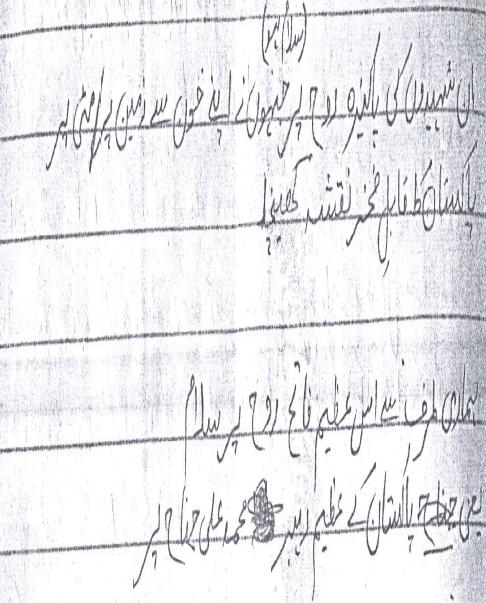 (سلام ہو)
ان شہیدوں کی پاکیزہ روح پر جنہوں نے اپنے خون سے زمین پر
پاکستان کا قابلِ فخر نقشہ کھینچا
ہماری طرف سے اس عظیم فاتح روح پر سلام
یعنی پاکستان کے عظیم رہبر محمد علی جناح پر